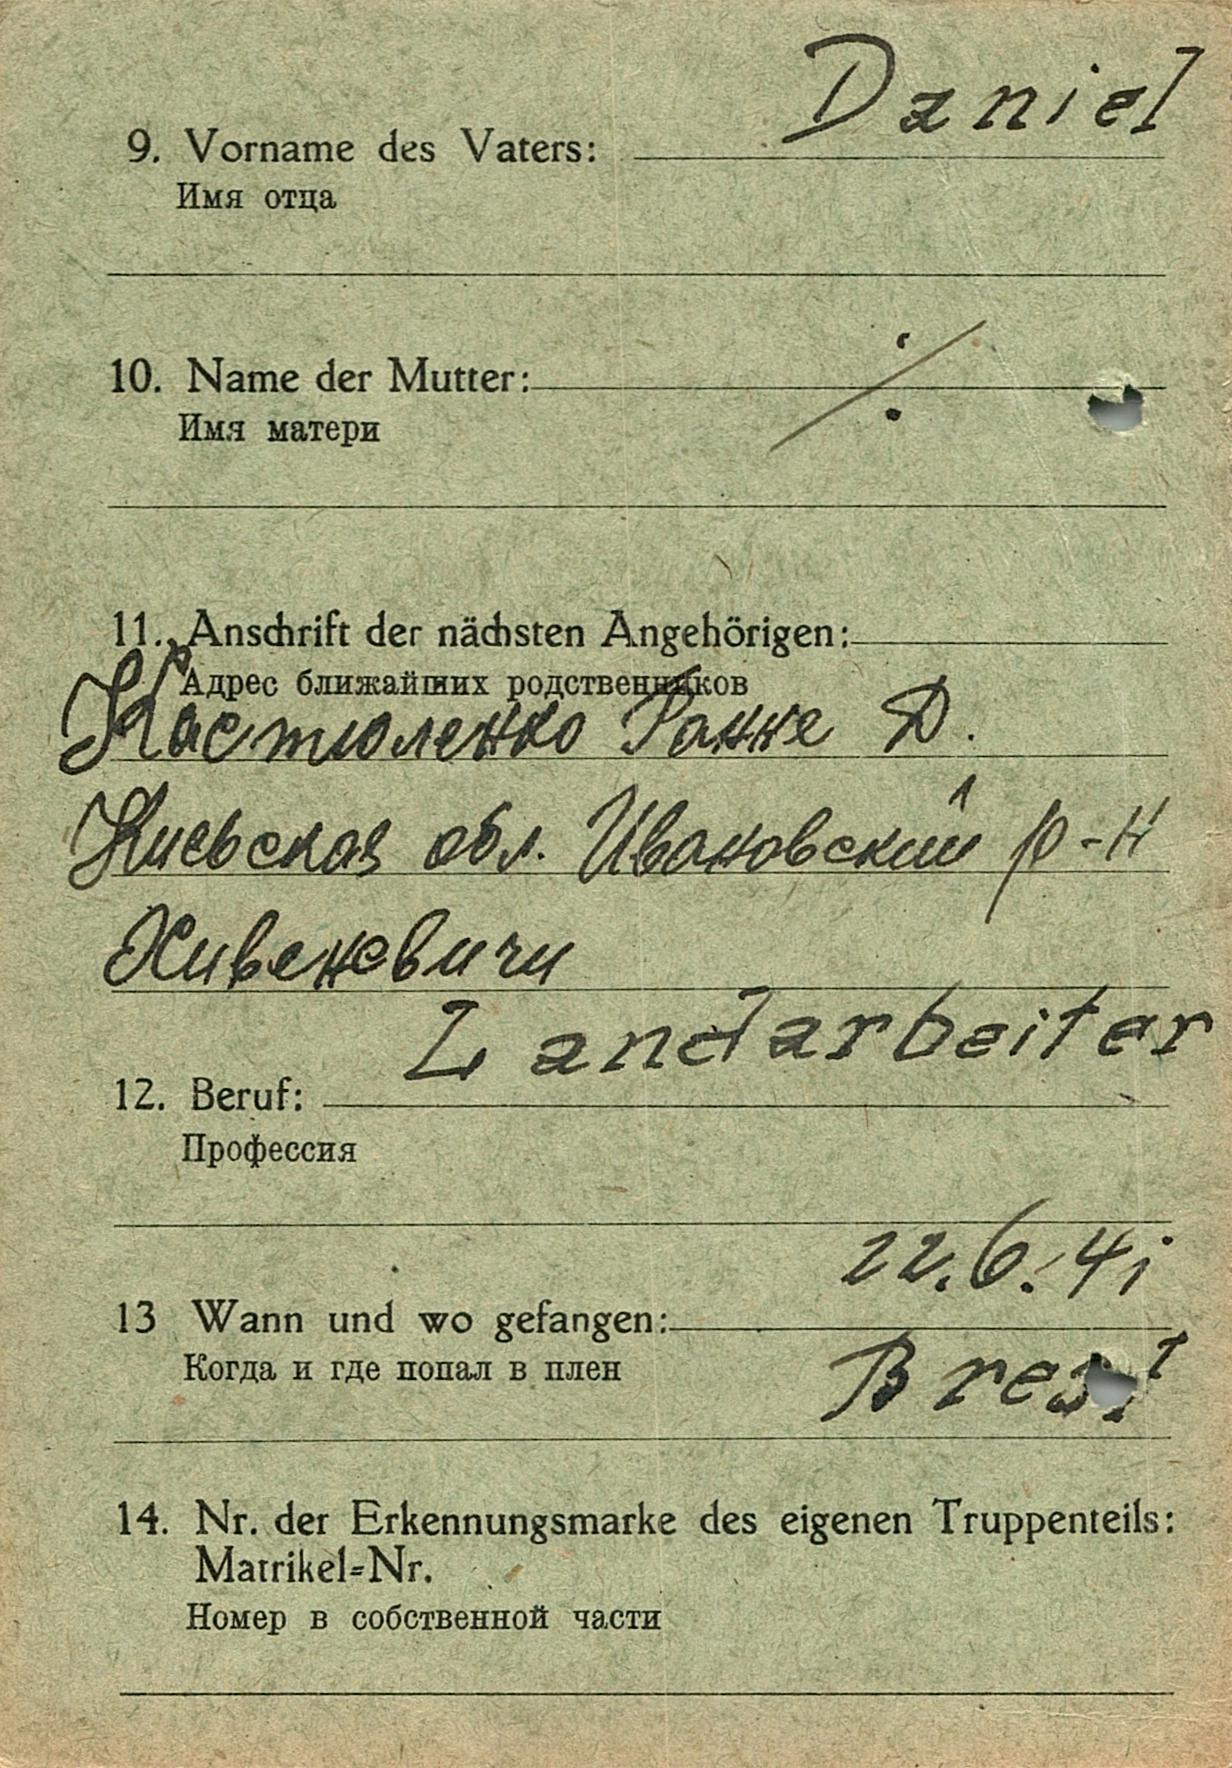 Daniel
9. Vorname des Vaters:
Имя отца
10. Name der Mutter: ·/.
Имя матери
11. Anschrift der nächsten Angehörigen:
Адрес ближайших родственников
Кастюленко Д.
Киевская обл. Ивановский р-н
Landarbeiter
12. Beruf:
Профессия
22.6.41
13 Wann und wo gefangen:
Когда и где попал в плен
Brest
14. Nr. der Erkennungsmarke des eigenen Truppenteils:
Matrikel=Nr.
Номер в собственной части